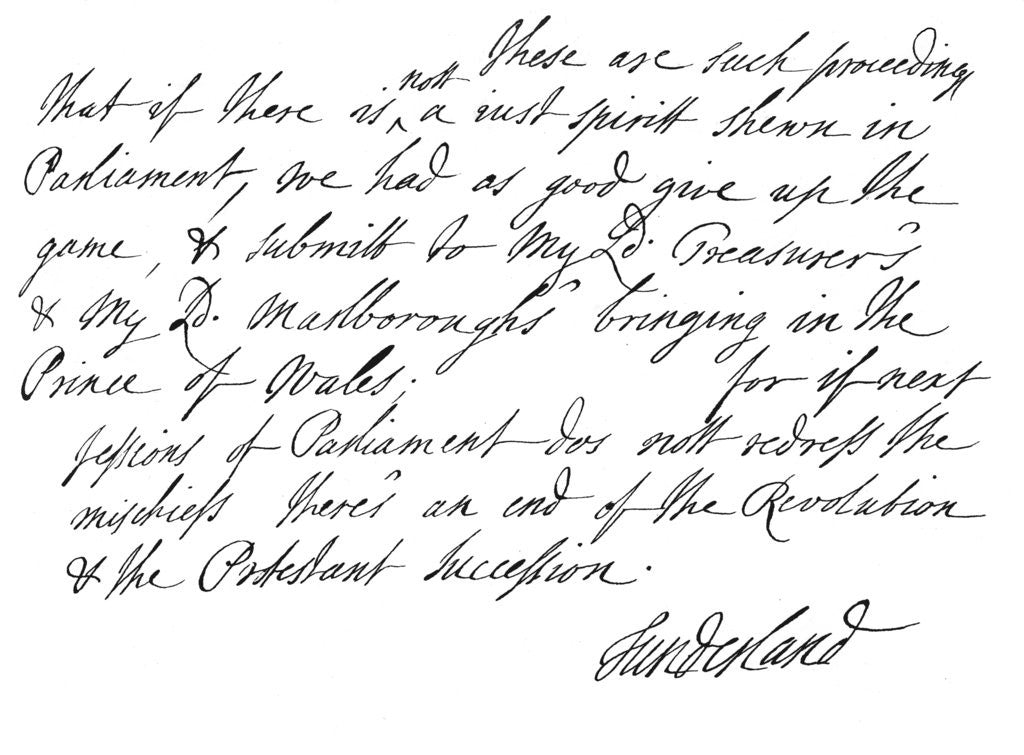 These are such proceedings
that if there is nott a iust spiritt shewn in
Parliament, we had as good give up the
game, & submitt to My Ld. Treasurer's
& My Ld. Marlborough's bringing in the
Prince of Wales; for if next
sessions of Parliament dos nott redress the
mischiefs there's an end of the Revolution
& the Protestant succession.
Sunderland